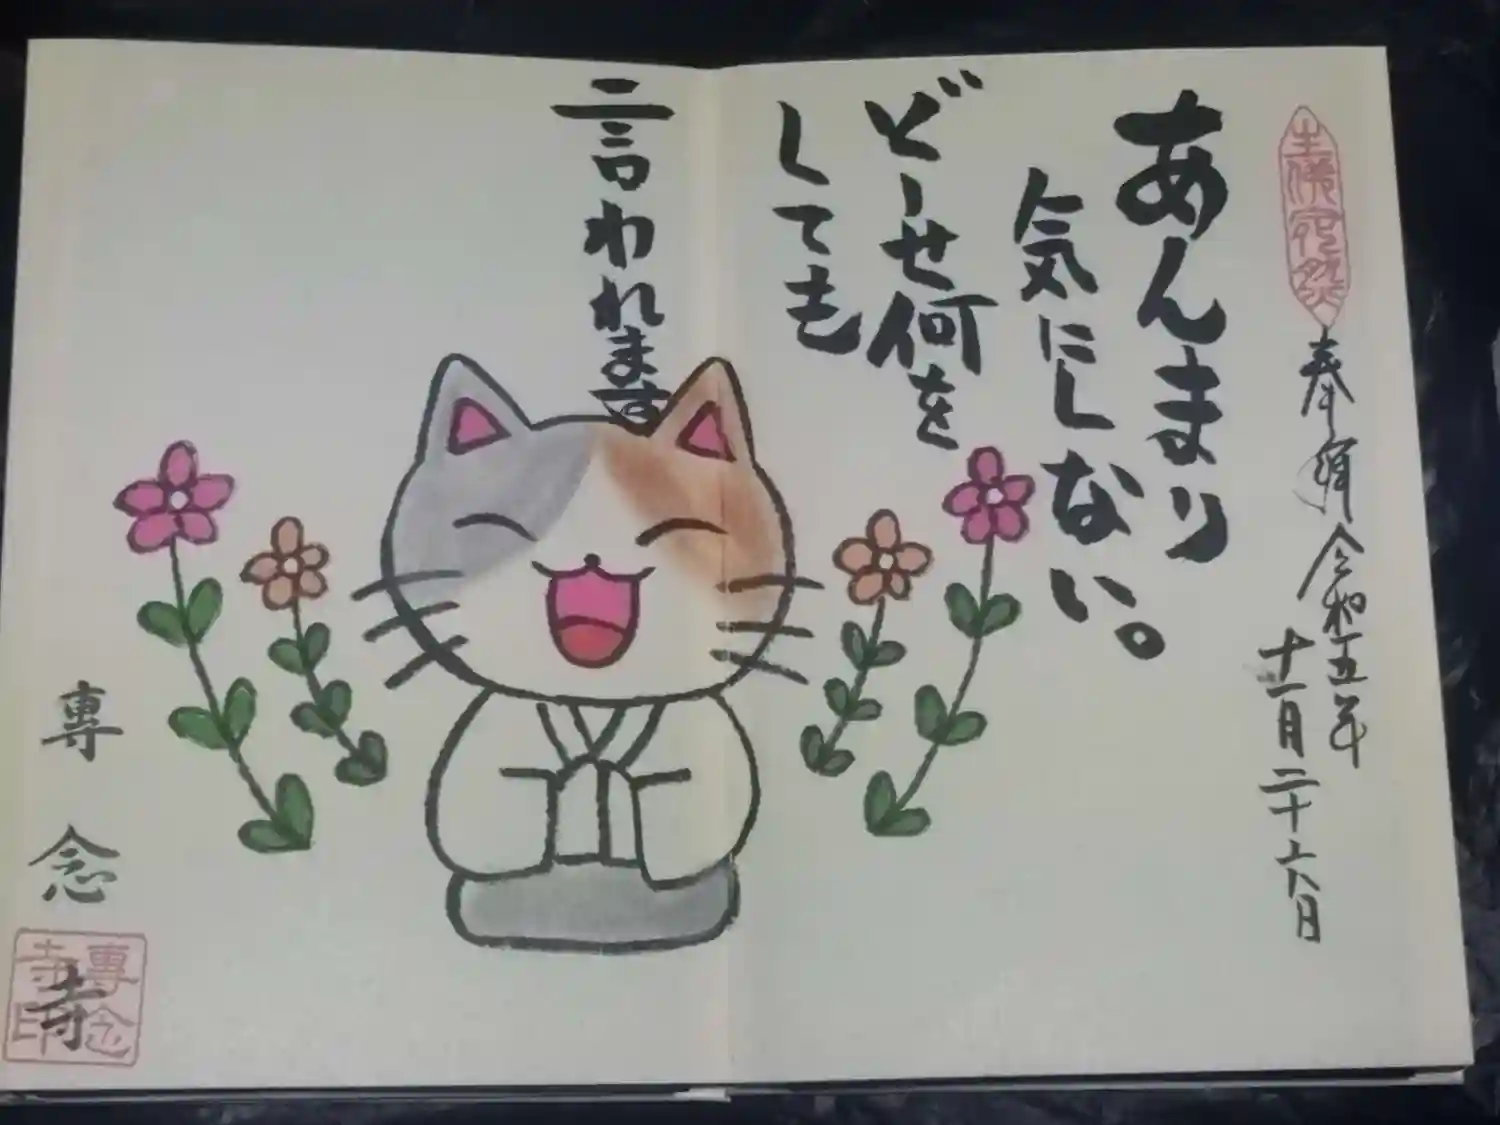 奉拝 令和五年
十一月二十六日
あんまり
気にしない。
どーせ何を
しても
言われます
専念
寺
専念
寺印